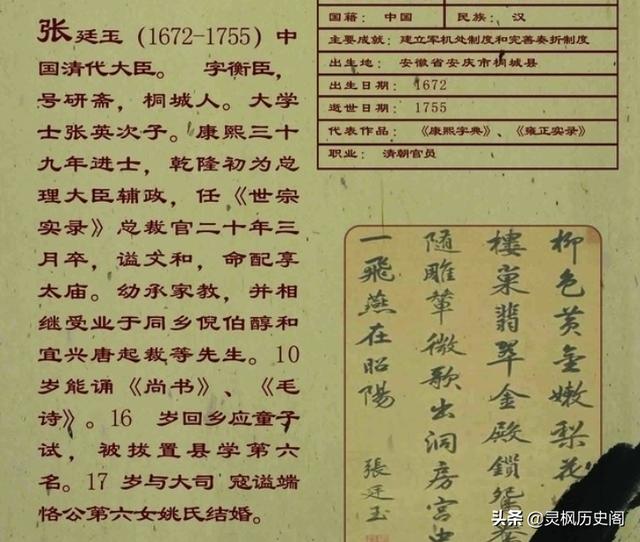 张廷玉（1672-1755）中
国清代大臣。 字衡臣，
号研斋，桐城人。大学
士张英次子。康熙三十
九年进士，乾隆初为总
理大臣辅政，任《世宗
实录》总裁官二十年三
月卒，谥文和，命配享
太庙。幼承家教，并相
继受业于同乡倪伯醇和
宜兴唐起裁等先生。10
岁能诵《尚书》、《毛
诗》。16 岁回乡应童子
试，被拔置县学第六
名。17 岁与大司 寇谥端
恪公第六女姚氏结婚。
国籍： 中国 民族： 汉
主要成就： 建立军机处制度和完善奏折制度
出生地： 安徽省安庆市桐城县
出生日期： 1672
逝世日期： 1755
代表作品： 《康熙字典》、《雍正实录》
职业： 清朝官员
柳色黄金嫩梨花
楼巢翡翠金殿锁鸳
随雕辇微歌出洞房宫中
一飛燕在昭陽
張廷玉
头条 @灵枫历史阁